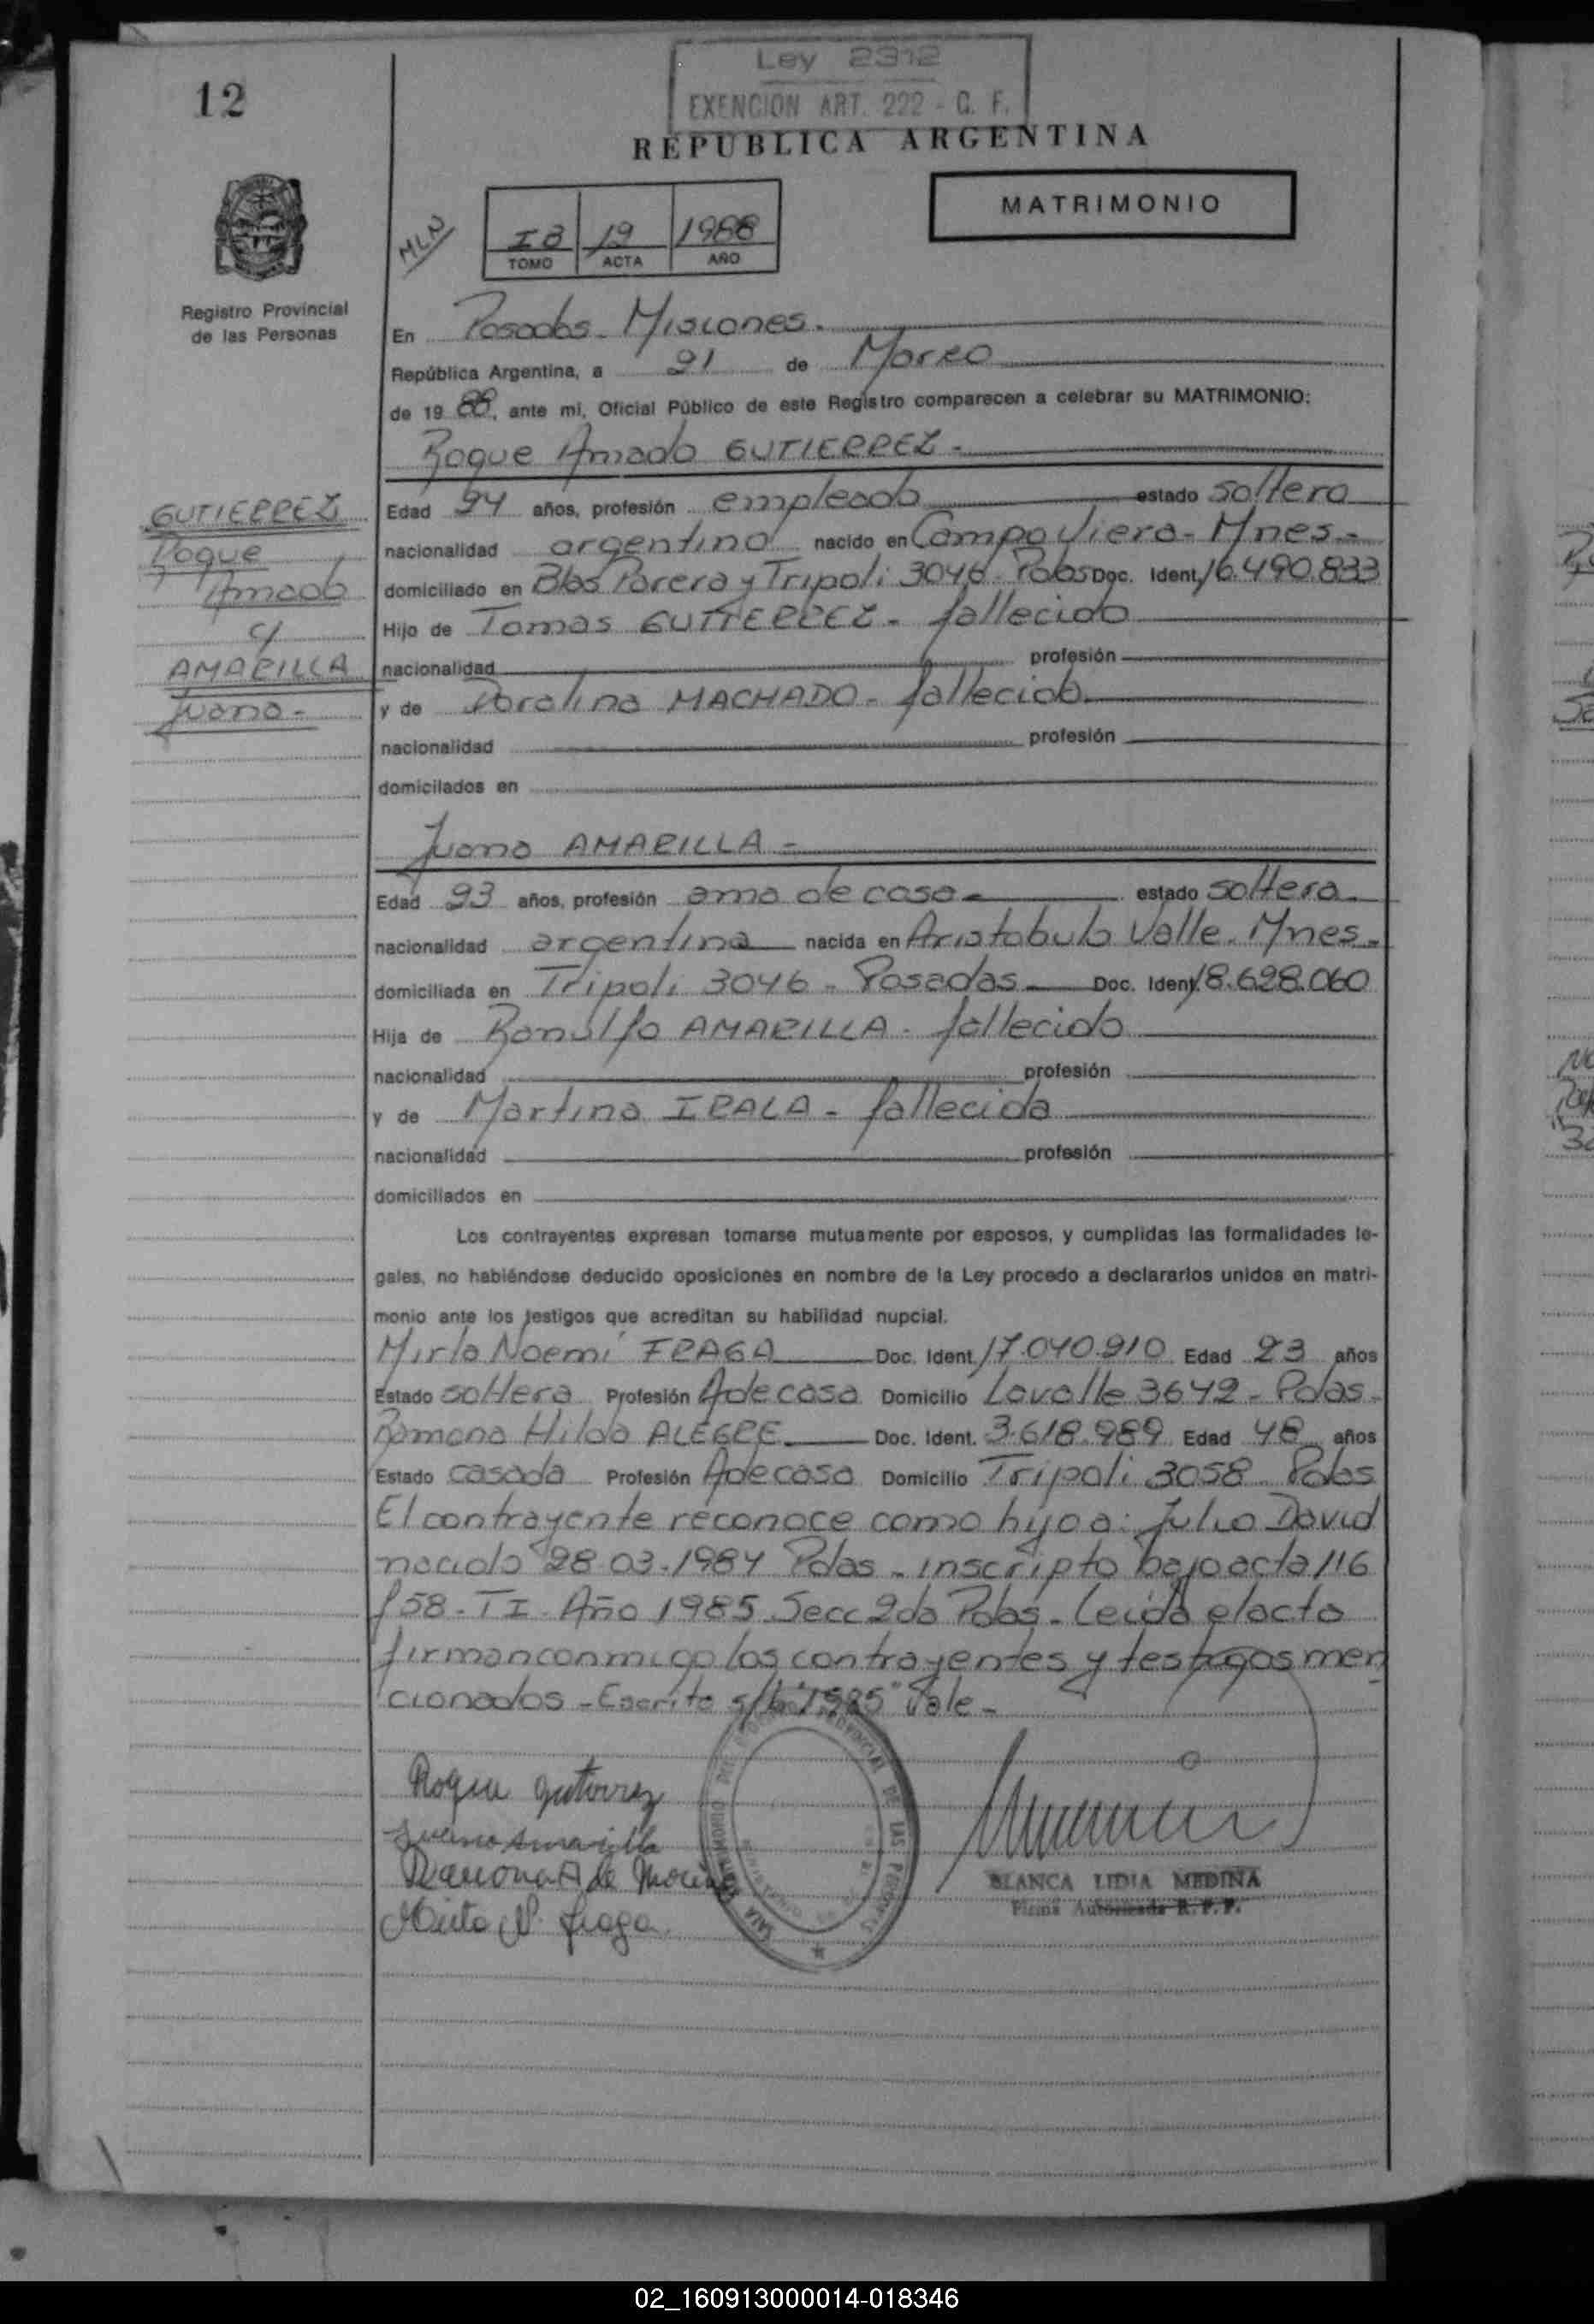 12
Ley 2312
EXENCION ART. 222 - C. F.
REPUBLICA ARGENTINA
MATRIMONIO
MLN
I B 19 1988
TOMO ACTA AÑO
Registro Provincial
de las Personas
En Posadas - Misiones.
República Argentina, a 21 de Marzo
de 19 88, ante mi, Oficial Público de este Registro comparecen a celebrar su MATRIMONIO:
Roque Amado GUTIERREZ -
GUTIERREZ
Roque
Amado
c/
AMARILLA
Juana -
Edad 24 años, profesión empleado estado soltero
nacionalidad argentino nacido en Campo Viera - Mnes -
domiciliado en Blas Parera y Tripoli 3046 - Pdas Doc. Ident. 16.490.833
Hijo de Tomas GUTIERREZ - fallecido
nacionalidad profesión
y de Doralina MACHADO - fallecida
nacionalidad profesión
domicilados en
Juana AMARILLA -
Edad 23 años, profesión ama de casa - estado soltera.
nacionalidad argentina nacida en Aristobulo Valle - Mnes -
domiciliada en Tripoli 3046 - Posadas Doc. Ident. 18.628.060
Hija de Ranulfo AMARILLA - fallecido
nacionalidad profesión
y de Martina IRALA - fallecida
nacionalidad profesión
domiciliados en
Los contrayentes expresan tomarse mutuamente por esposos, y cumplidas las formalidades le-
gales, no habiéndose deducido oposiciones en nombre de la Ley procedo a declararlos unidos en matri-
monio ante los testigos que acreditan su habilidad nupcial.
Mirta Noemí FRAGA Doc. Ident. 17.040.910 Edad 23 años
Estado soltera Profesión A de casa Domicilio Lavalle 3642 - Pdas -
Ramona Hilda ALEGRE Doc. Ident. 3.618.989 Edad 48 años
Estado casada Profesión A de casa Domicilio Tripoli 3058 - Pdas
El contrayente reconoce como hijo a: Julio David
nacido 28-03-1984 Pdas - inscripto bajo acta 116
f 58 - T I - Año 1985 Secc 2da Pdas - Leida el acta
firman conmigo los contrayentes y testigos men
cionados - Escrito s/b "1985" Vale -
Roque Gutierrez
Juana Amarilla
Ramona A de
Mirta N. Fraga.
PROVINCIAL DE LAS PERSONAS
BLANCA LIDIA MEDINA
Firma Autorizada R. P. P.
02_160913000014-018346